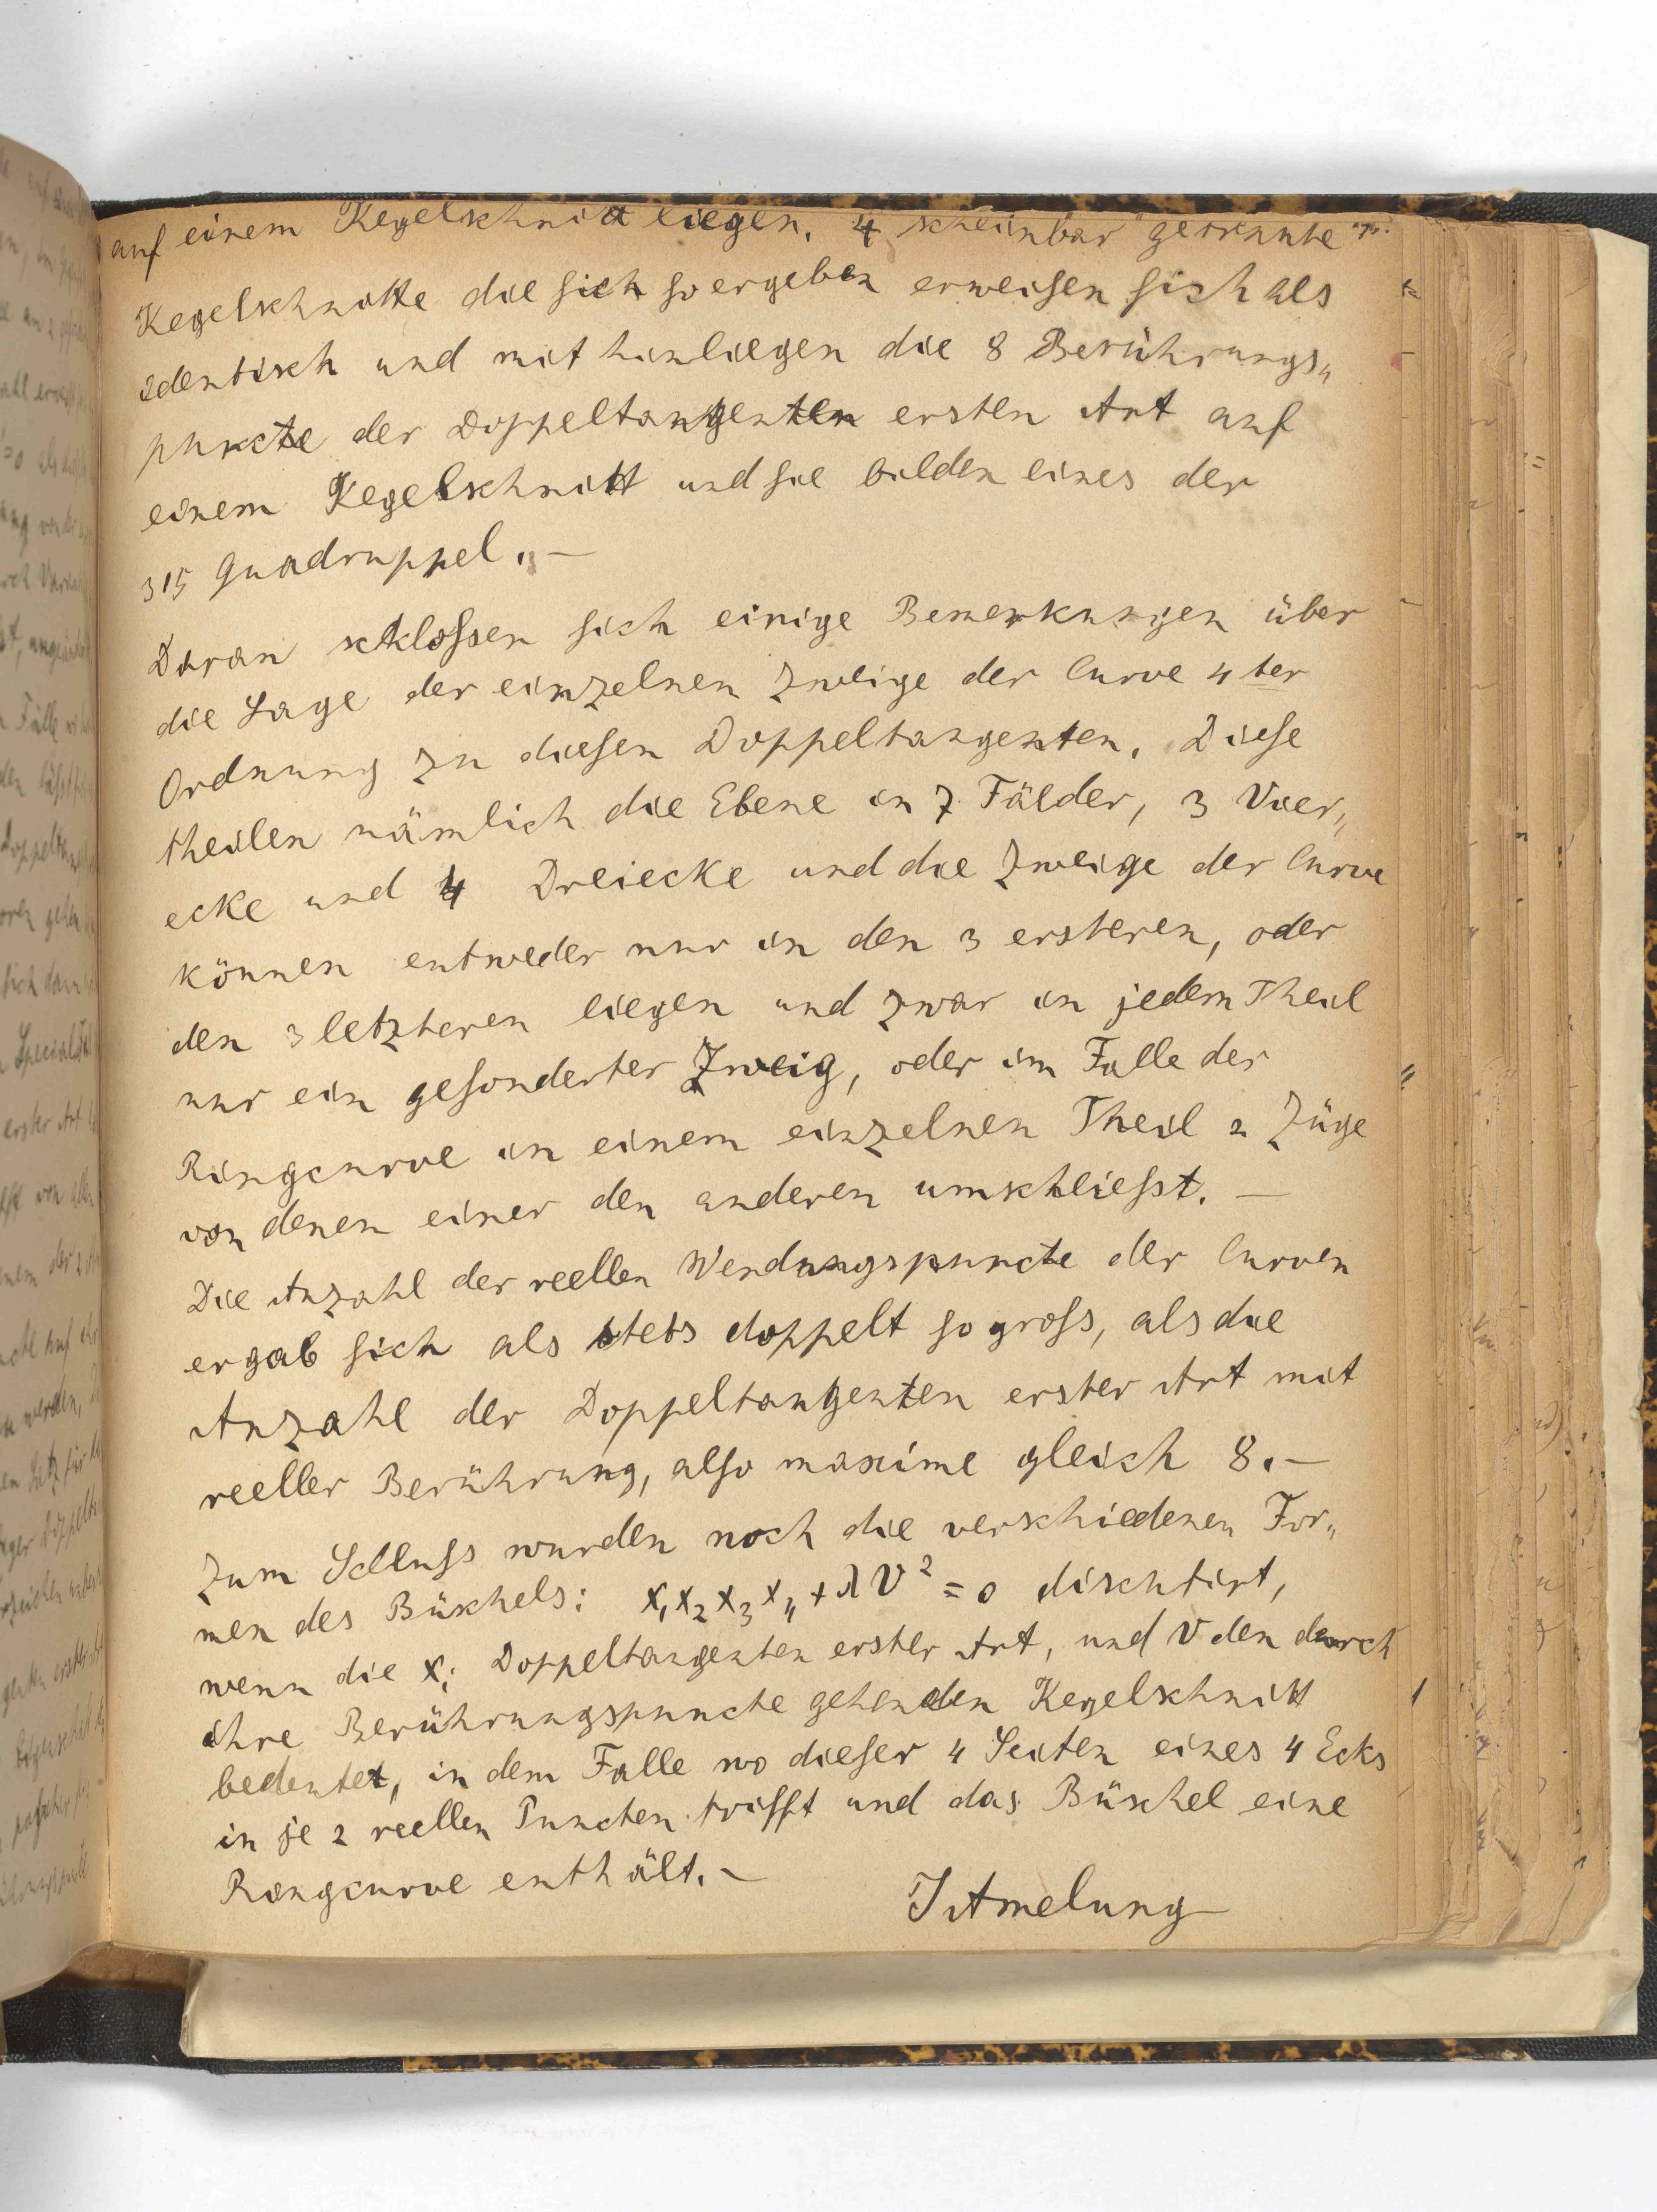 auf einem Kegelschnitt liegen. 4 scheinbar getrennte
Kegelschnitte die sich so ergeben erweisen sich als
identisch und mithin liegen die 8 Berührungs„
puncte der Doppeltangenten ersten Art auf
einem Kegelschnitt und sie bilden eines der
315 Quadruppel. –
Daran schlossen sich einige Bemerkungen über
die Lage der einzelnen Zweige der Curve 4ter
Ordnung zu diesen Doppeltangenten. Diese
theilen nämlich die Ebene in 7 Fälder, 3 Vier„
ecke und 4 Dreiecke und die Zweige der Curve
können entweder nur in den 3 ersteren, oder
den 3 letzteren liegen und zwar in jedem Theil
nur ein gesonderter Zweig, oder im Falle der
Ringcurve in einem einzelnen Theil 2 Züge
von denen einer den anderen umschliesst. –
Die Anzahl der reellen Wendungspuncte der Curven
ergab sich als stets doppelt so gross, als die
Anzahl der Doppeltangenten erster Art mit
reeller Berührung, also maxime gleich 8. –
Zum Schluss wurden noch die verschiedenen For„
men des Büschels: x₁x₂x₃x₄ + λV² = 0 diskutirt,
wenn die xᵢ Doppeltangenten erster Art, und V den durch
ihre Berührungspuncte gehenden Kegelschnitt
bedeutet, in dem Falle wo dieser 4 Seiten eines 4 Ecks
in je 2 reellen Puncten trifft und das Büschel eine
Ringcurve enthält. –
J Amelung